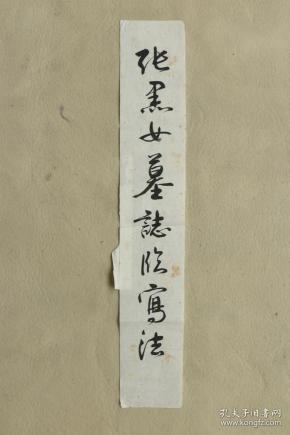 张黑女墓誌临寫法
孔夫子旧书网
www.kongfz.com